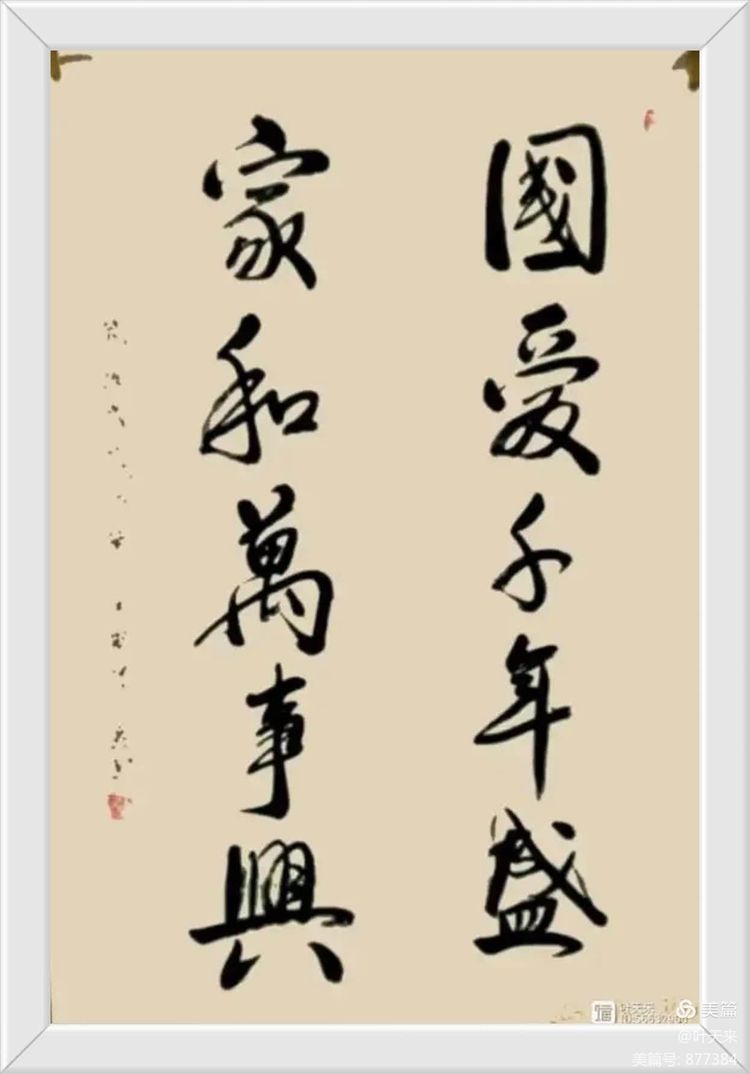 國愛千年盛
家和萬事興
美篇
@叶天来
美篇号: 877384